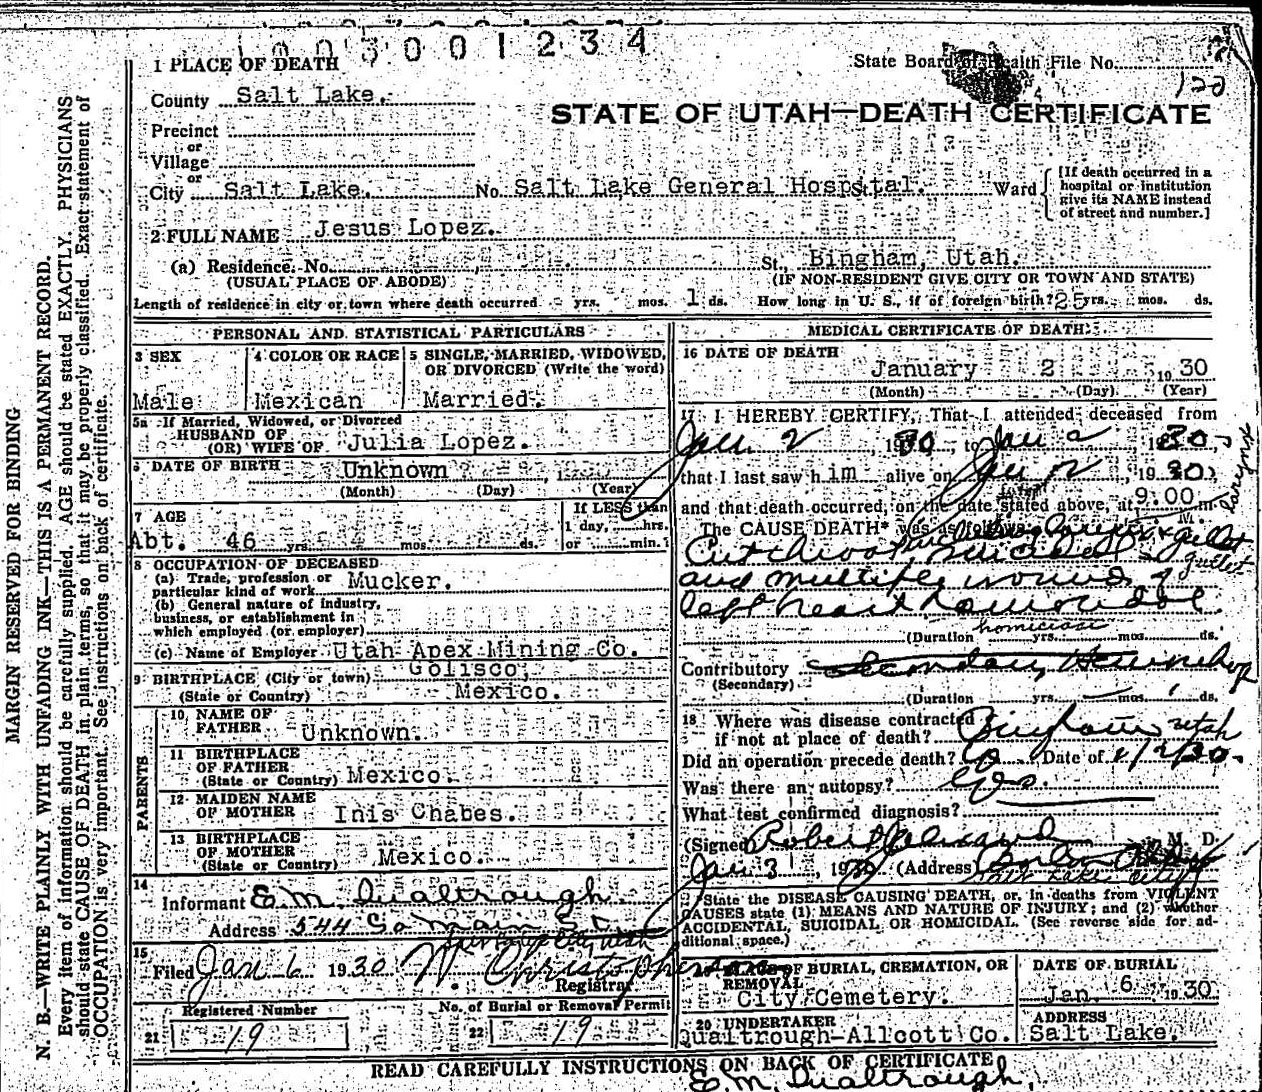 1 0 0 3 0 0 1 2 3 4
1 PLACE OF DEATH
State Board of Health File No.
122
County Salt Lake.
STATE OF UTAH—DEATH CERTIFICATE
Precinct
or
Village
or
City Salt Lake. No. Salt Lake General Hospital. St. Ward
[If death occurred in a
hospital or institution
give its NAME instead
of street and number.]
2 FULL NAME Jesus Lopez.
(a) Residence. No. St., Bingham, Utah.
(USUAL PLACE OF ABODE) (IF NON-RESIDENT GIVE CITY OR TOWN AND STATE)
Length of residence in city or town where death occurred yrs. mos. 1 ds. How long in U. S., if of foreign birth? 25 yrs. mos. ds.
PERSONAL AND STATISTICAL PARTICULARS
3 SEX
Male
4 COLOR OR RACE
Mexican
5 SINGLE, MARRIED, WIDOWED,
OR DIVORCED (Write the word)
Married.
5a If Married, Widowed, or Divorced
HUSBAND OF
(OR) WIFE OF Julia Lopez.
6 DATE OF BIRTH Unknown
(Month) (Day) (Year)
7 AGE
Abt. 46 yrs. mos. ds.
If LESS than
1 day, hrs.
or min.
8 OCCUPATION OF DECEASED
(a) Trade, profession or
particular kind of work Mucker.
(b) General nature of industry,
business, or establishment in
which employed (or employer)
(c) Name of Employer Utah Apex Mining Co.
9 BIRTHPLACE (City or town) Golisco,
(State or Country) Mexico.
PARENTS
10 NAME OF
FATHER Unknown.
11 BIRTHPLACE
OF FATHER
(State or Country) Mexico.
12 MAIDEN NAME
OF MOTHER Inis Chabes.
13 BIRTHPLACE
OF MOTHER
(State or Country) Mexico.
14
Informant E.M. Qualtrough.
Address 544 So Main St.
Salt Lake City, Utah
15
Filed Jan 6 1930 W. Christopherson
Registrar
Registered Number
21 19
No. of Burial or Removal Permit
22 19
MEDICAL CERTIFICATE OF DEATH
16 DATE OF DEATH
January 2 1930
(Month) (Day) (Year)
17 I HEREBY CERTIFY, That I attended deceased from
Jan 2, 1930, to Jan 2 1930,
that I last saw him alive on Jan 2, 1930,
and that death occurred, on the date stated above, at 9:00 m.
M.
The CAUSE DEATH* was as follows:
larynx
Cut throat
gullet
and multiple wounds of
left heart
homicide
(Duration yrs. mos. ds.
Contributory
(Secondary)
(Duration yrs. mos. ds.
18 Where was disease contracted
if not at place of death? Bingham Utah
Did an operation precede death? Date of 1/2/30.
Was there an autopsy? Yes.
What test confirmed diagnosis?
(Signed Robert M. D.
Jan 3, 1930 (Address)
Salt Lake City
*State the DISEASE CAUSING DEATH, or, in deaths from VIOLENT
CAUSES state (1) MEANS AND NATURE OF INJURY; and (2) whether
ACCIDENTAL, SUICIDAL OR HOMICIDAL. (See reverse side for ad-
ditional space.)
19 PLACE OF BURIAL, CREMATION, OR
REMOVAL
City Cemetery.
DATE OF BURIAL
Jan. 6 1930
20 UNDERTAKER
Qualtrough-Allcott Co.
ADDRESS
Salt Lake.
READ CAREFULLY INSTRUCTIONS ON BACK OF CERTIFICATE
E.M. Qualtrough.
MARGIN RESERVED FOR BINDING
N. B.—WRITE PLAINLY WITH UNFADING INK—THIS IS A PERMANENT RECORD.
Every item of information should be carefully supplied. AGE should be stated EXACTLY. PHYSICIANS
should state CAUSE OF DEATH in plain terms, so that it may be properly classified. Exact statement of
OCCUPATION is very important. See instructions on back of certificate.